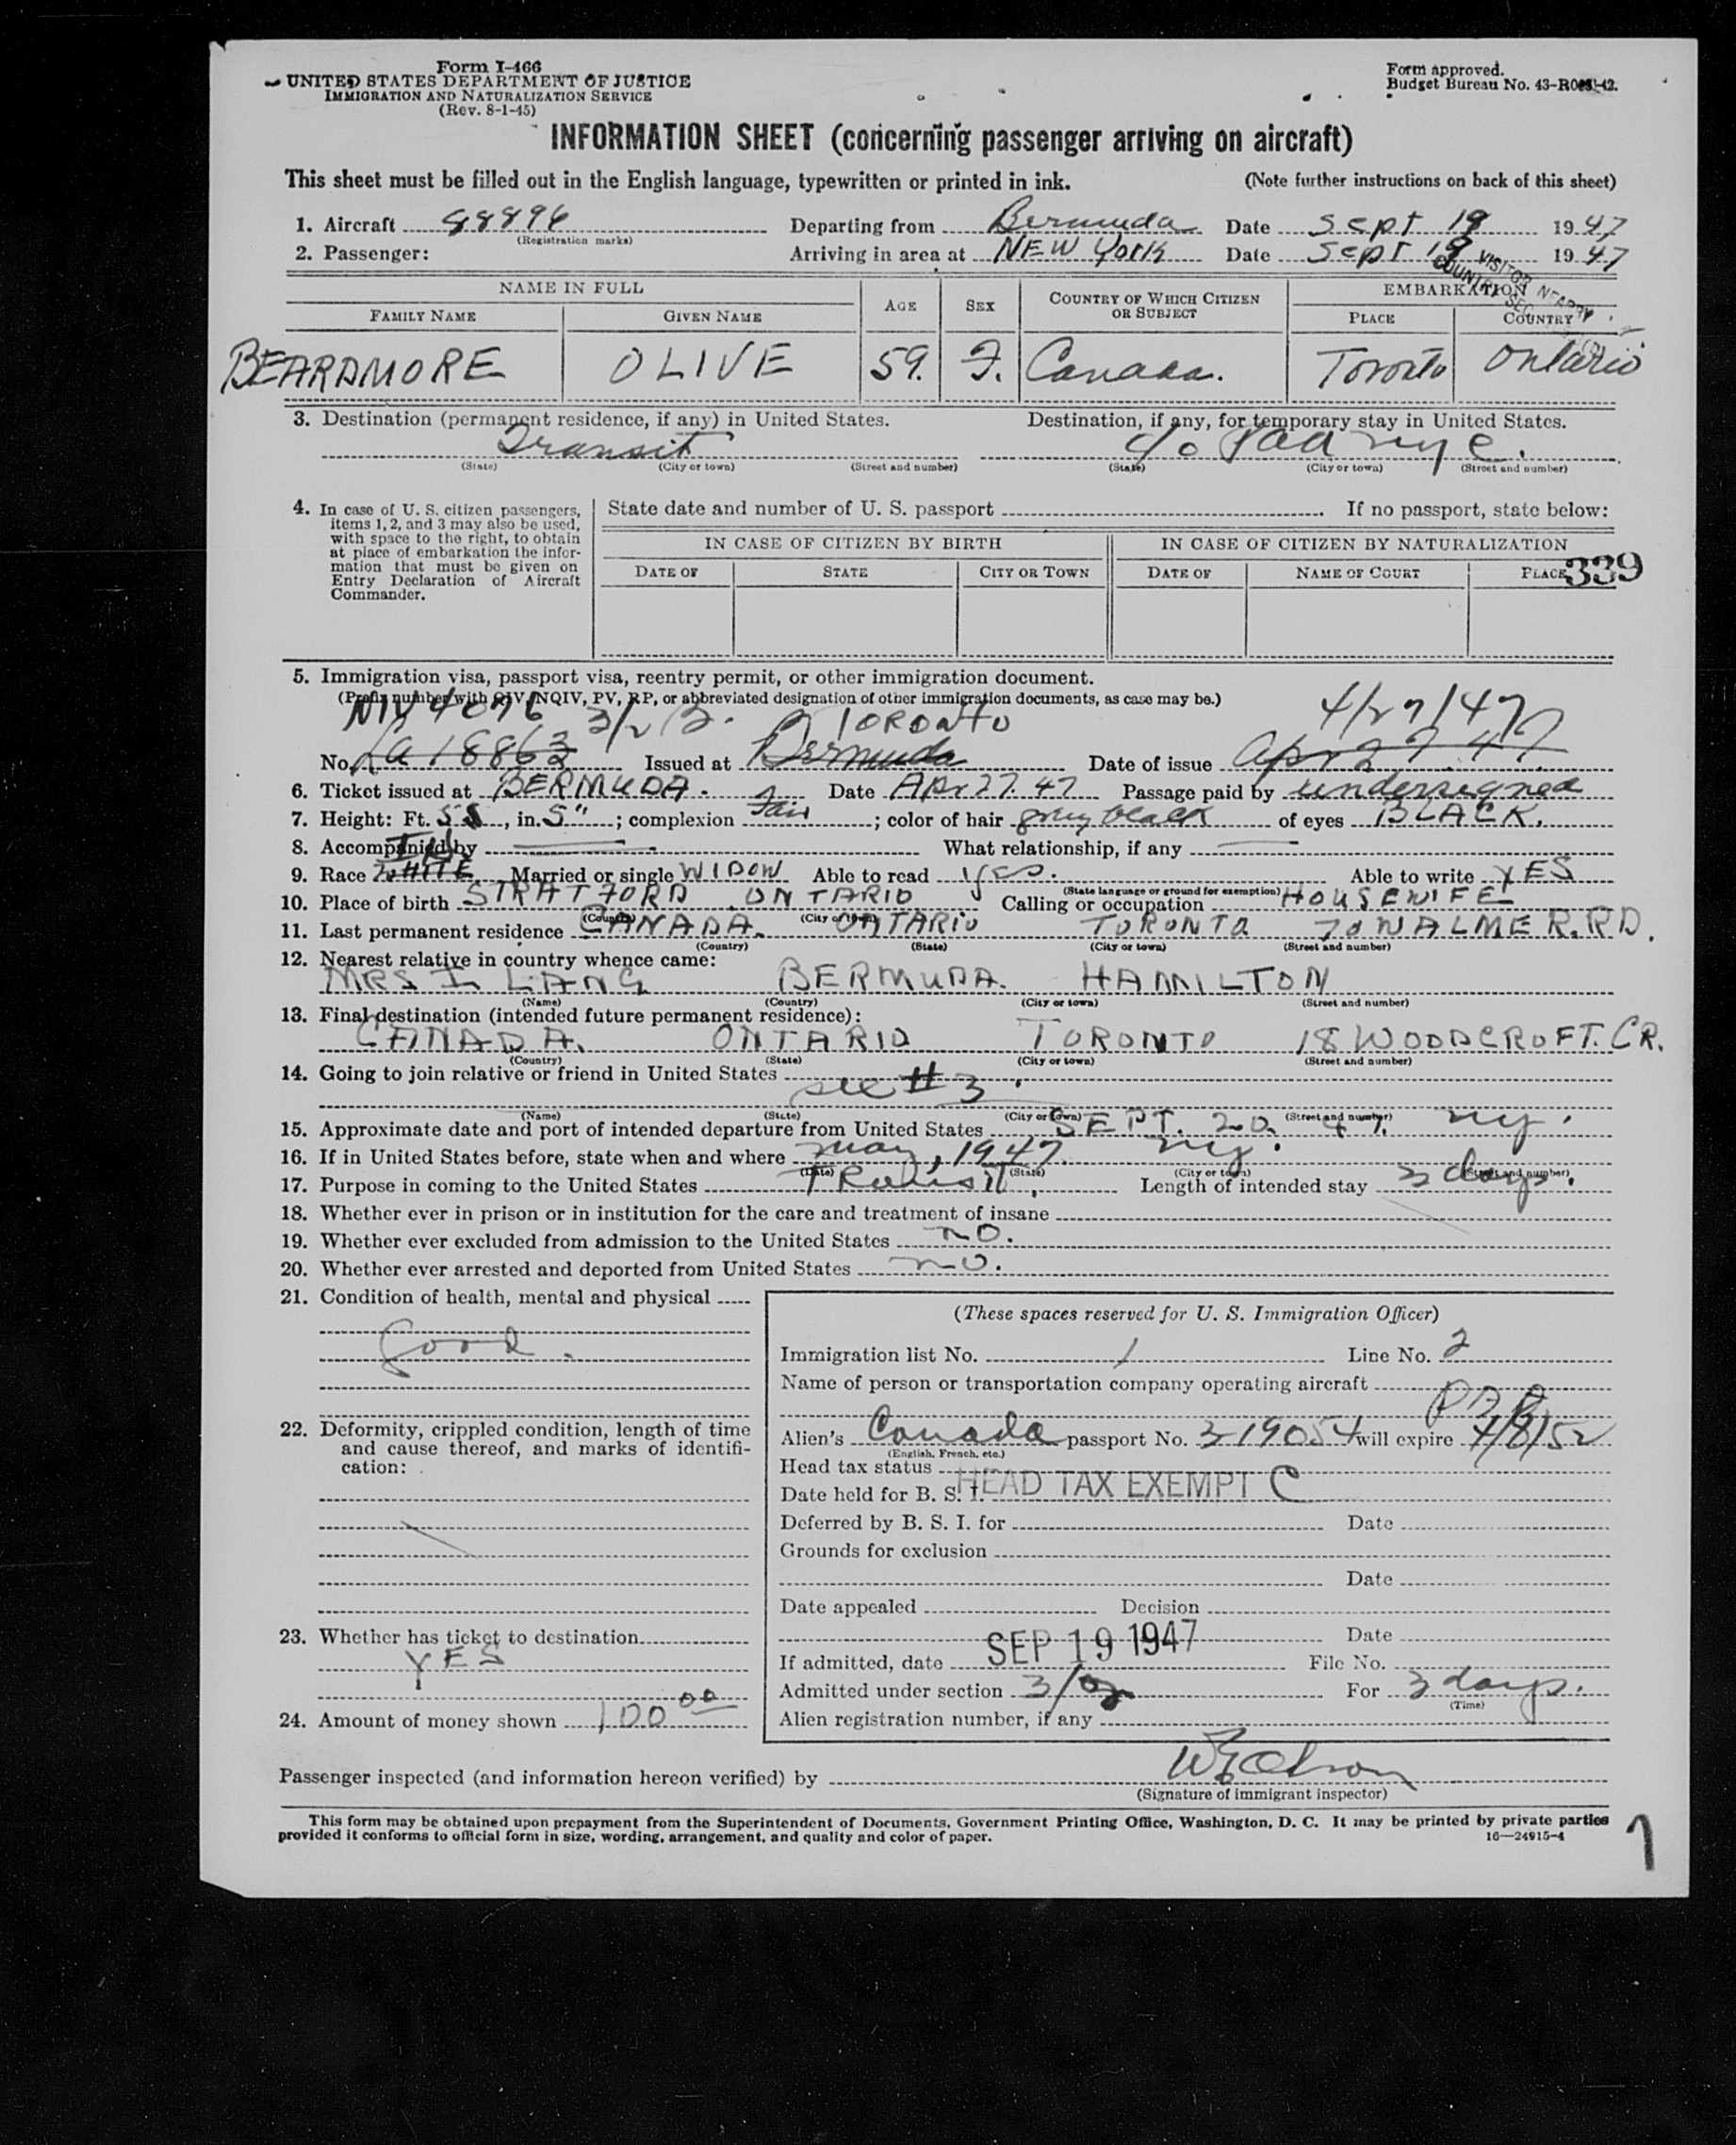 Form I-466
UNITED STATES DEPARTMENT OF JUSTICE
IMMIGRATION AND NATURALIZATION SERVICE
(Rev. 8-1-45)
Form approved.
Budget Bureau No. 43-R
INFORMATION SHEET (concerning passenger arriving on aircraft)
This sheet must be filled out in the English language, typewritten or printed in ink. (Note further instructions on back of this sheet)
1. Aircraft 88896 Departing from Bermuda Date Sept 19 1947
(Registration marks)
2. Passenger: Arriving in area at NEW York Date Sept 19 1947
NAME IN FULL AGE SEX COUNTRY OF WHICH CITIZEN OR SUBJECT EMBARKATION
FAMILY NAME GIVEN NAME PLACE COUNTRY
BEARDMORE OLIVE 59. F. Canada. Toronto Ontario
3. Destination (permanent residence, if any) in United States. Destination, if any, for temporary stay in United States.
Transit c/o nyc.
(State) (City or town) (Street and number) (State) (City or town) (Street and number)
4. In case of U. S. citizen passengers, items 1, 2, and 3 may also be used, with space to the right, to obtain at place of embarkation the information that must be given on Entry Declaration of Aircraft Commander.
State date and number of U. S. passport If no passport, state below:
IN CASE OF CITIZEN BY BIRTH IN CASE OF CITIZEN BY NATURALIZATION
DATE OF STATE CITY OR TOWN DATE OF NAME OF COURT PLACE 339
5. Immigration visa, passport visa, reentry permit, or other immigration document.
(Prefix number with QIV, NQIV, PV, RP, or abbreviated designation of other immigration documents, as case may be.)
NIV 4096 3/2 TORONTO 4/27/47
No. 18863 Issued at Bermuda Date of issue Apr 27. 47.
6. Ticket issued at BERMUDA. Date Apr 27. 47 Passage paid by undersigned
7. Height: Ft. 5, in. 5"; complexion Fair; color of hair grey black of eyes BLACK.
8. Accompanied by What relationship, if any
9. Race WHITE Married or single WIDOW Able to read yes. Able to write YES
(State language or ground for exemption)
10. Place of birth STRATFORD ONTARIO Calling or occupation HOUSEWIFE
(Country) (City or town)
11. Last permanent residence CANADA. ONTARIO TORONTO 70 WALMER. RD.
(Country) (State) (City or town) (Street and number)
12. Nearest relative in country whence came:
MRS I LANG BERMUDA. HAMILTON
(Name) (Country) (City or town) (Street and number)
13. Final destination (intended future permanent residence):
CANADA. ONTARIO TORONTO 18 WOODCROFT. CR.
(Country) (State) (City or town) (Street and number)
14. Going to join relative or friend in United States
see #3.
(Name) (State) (City or town) (Street and number)
15. Approximate date and port of intended departure from United States SEPT. 20 47. ny.
16. If in United States before, state when and where may, 1947. ny.
(Date) (State) (City or town) (Street and number)
17. Purpose in coming to the United States TRansit, Length of intended stay 3 days.
18. Whether ever in prison or in institution for the care and treatment of insane
19. Whether ever excluded from admission to the United States NO.
20. Whether ever arrested and deported from United States no.
21. Condition of health, mental and physical
Good.
22. Deformity, crippled condition, length of time and cause thereof, and marks of identification:
23. Whether has ticket to destination
YES
24. Amount of money shown 100 00
(These spaces reserved for U. S. Immigration Officer)
Immigration list No. 1 Line No. 2
Name of person or transportation company operating aircraft
PAA
Alien's Canada passport No. 3-19054 will expire 4/8/52
(English, French, etc.)
Head tax status
HEAD TAX EXEMPT C
Date held for B. S. I.
Deferred by B. S. I. for Date
Grounds for exclusion
Date
Date appealed Decision
Date
If admitted, date SEP 19 1947 File No.
Admitted under section 3/ For 3 days.
(Time)
Alien registration number, if any
Passenger inspected (and information hereon verified) by
(Signature of immigrant inspector)
This form may be obtained upon prepayment from the Superintendent of Documents, Government Printing Office, Washington, D. C. It may be printed by private parties
provided it conforms to official form in size, wording, arrangement, and quality and color of paper. 16—24915-4